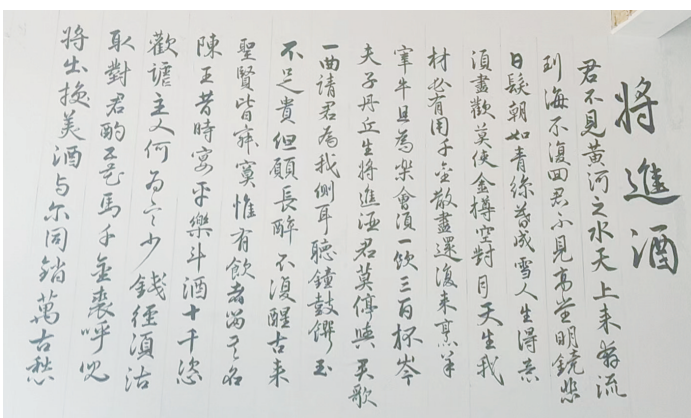 將進酒
君不見黃河之水天上来奔流
到海不復回君不見高堂明鏡悲
白髮朝如青絲暮成雪人生得意
須盡歡莫使金樽空對月天生我
材必有用千金散盡還復来烹羊
宰牛且為樂會須一飲三百杯岑
夫子丹丘生將進酒君莫停與君歌
一曲請君為我側耳聽鐘鼓饌玉
不足貴但願長醉不復醒古来
聖賢皆寂寞惟有飲者留其名
陳王昔時宴平樂斗酒十千恣
歡謔主人何為言少錢徑須沽
取對君酌五花馬千金裘呼兒
將出換美酒与尔同銷萬古愁